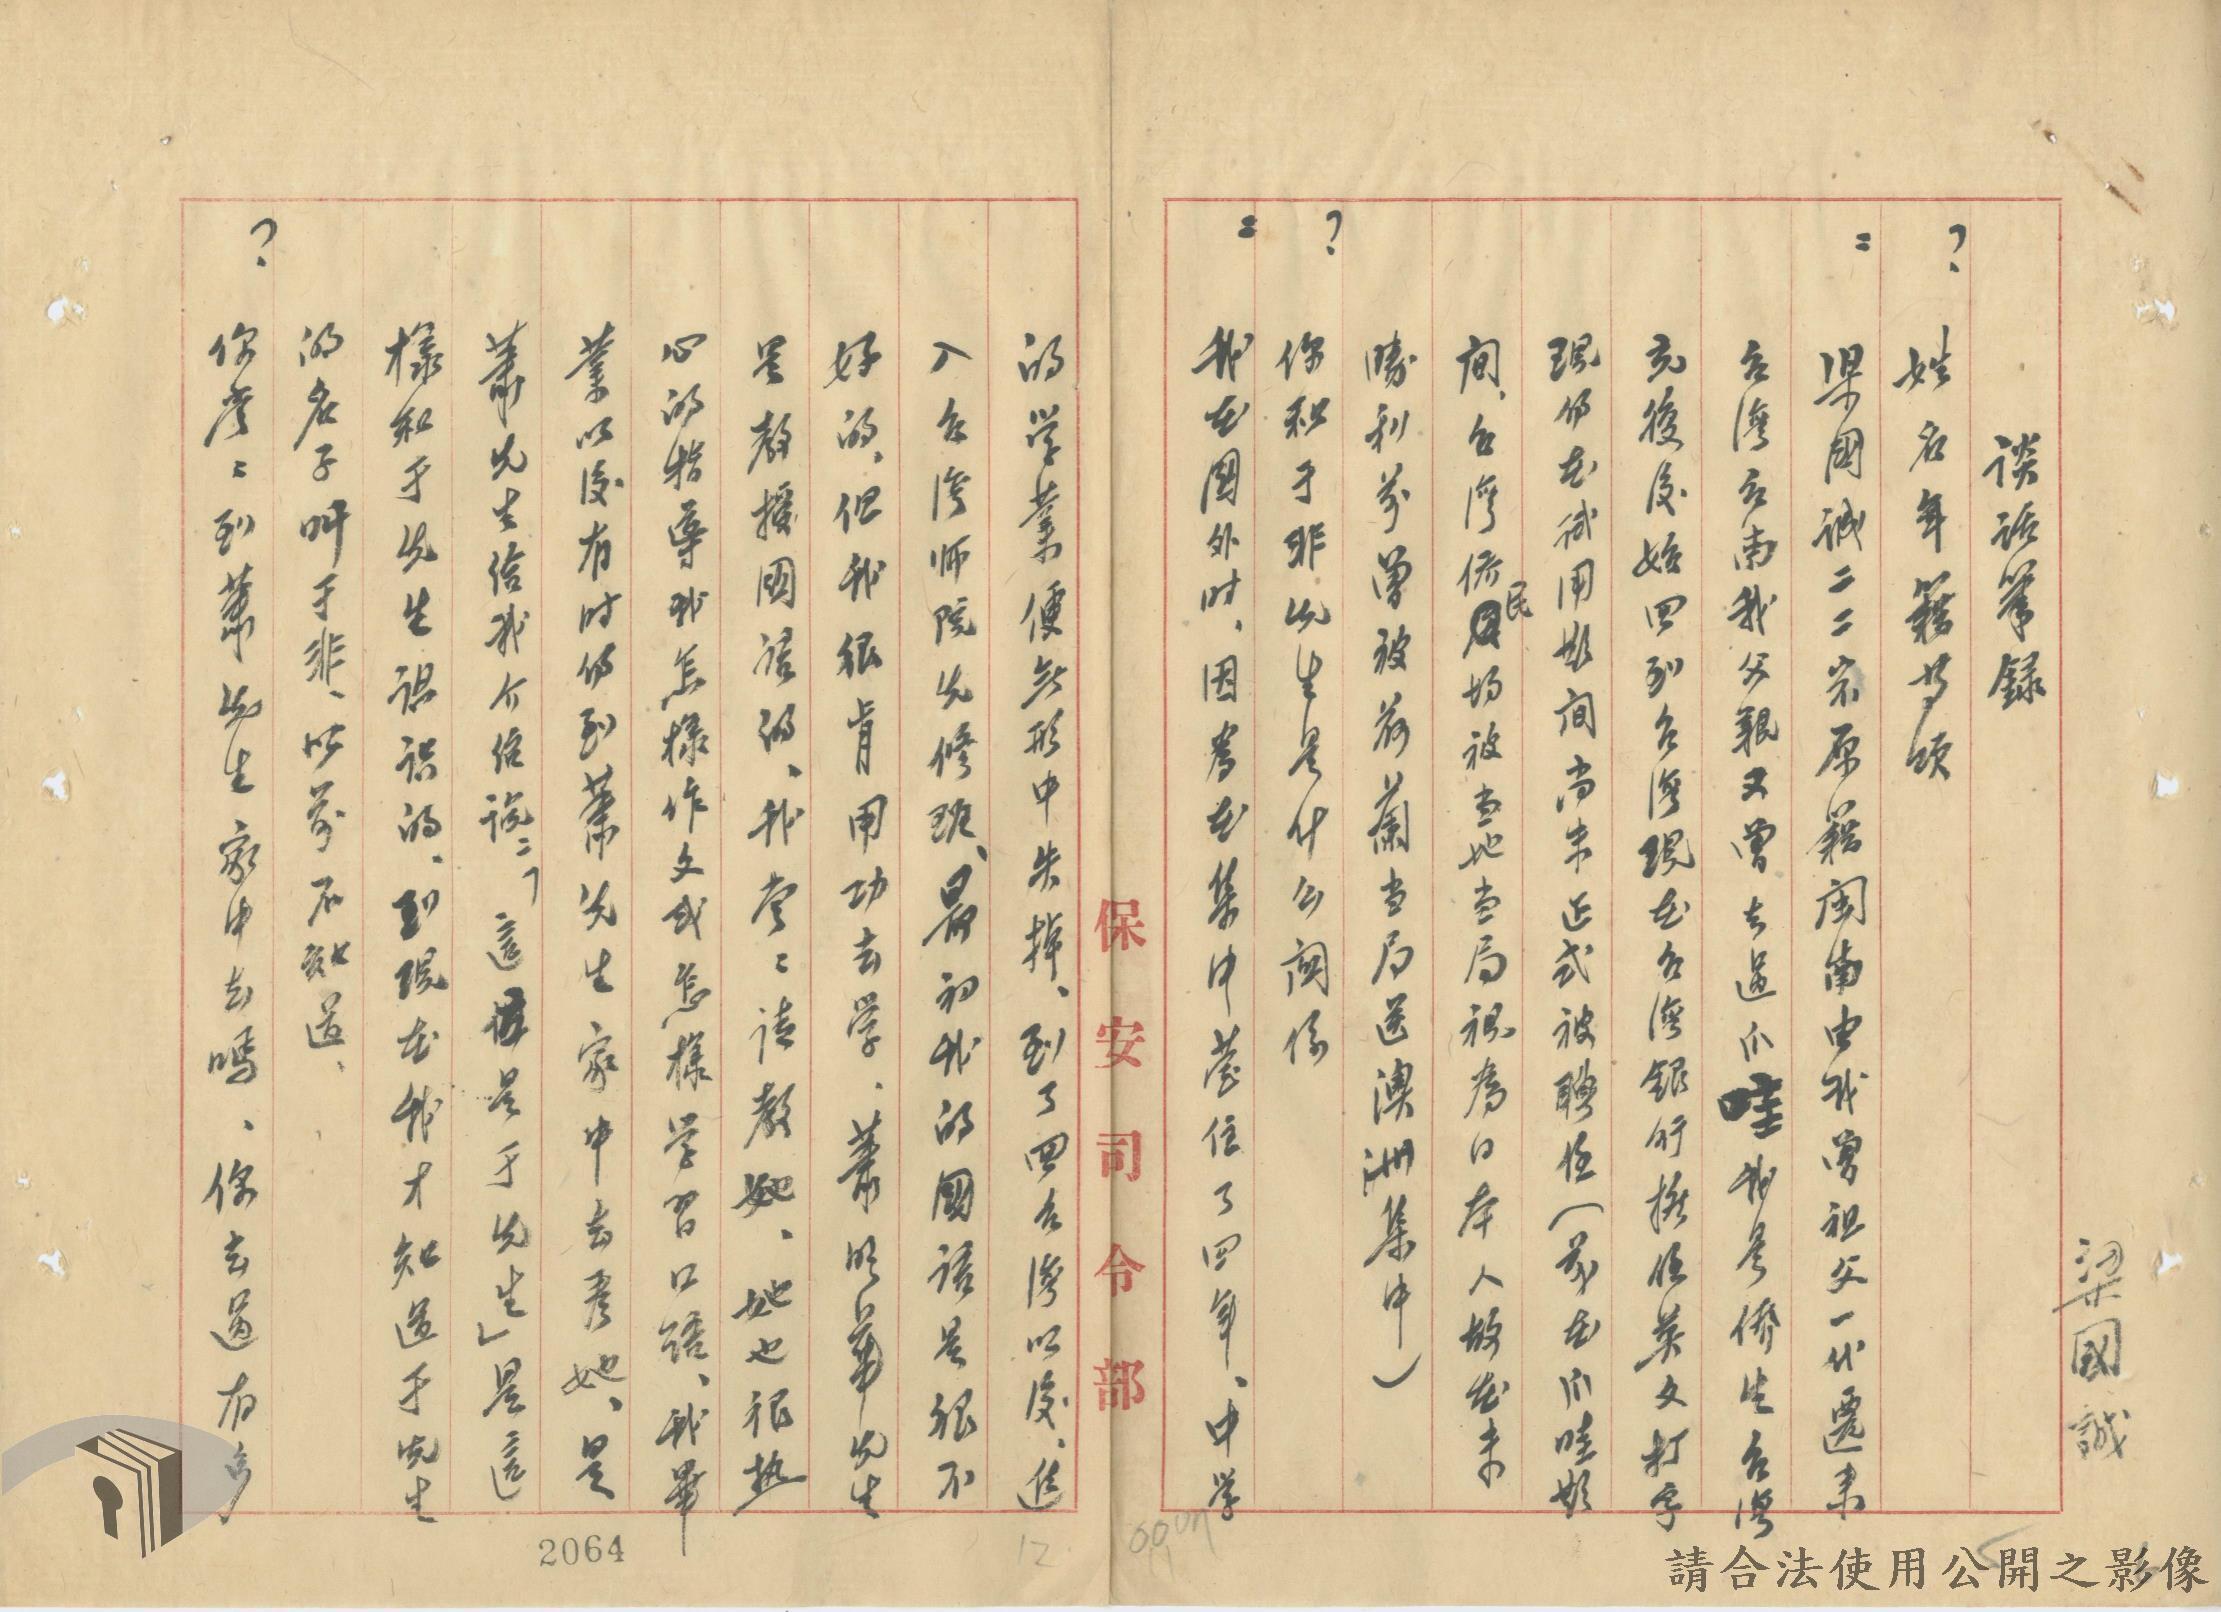 梁國誠
談話筆錄
？ 姓名年籍等項
＝ 梁國誠二二岁原籍閩南由我曾祖父一代遷来
台湾台南我父親又曾去過爪哇我是僑生台湾
克復後始回到台湾現在台湾銀行担任英文打字
現仍在試用期间尚未正式被聘任（前在爪哇期
间、台湾侨民均被当地当局視為日本人故在未
勝利前曾被荷蘭当局送澳洲集中）
？ 你和于非先生是什么関係
＝ 我在国外时、因為在集中营住了四年、中学
保安司令部
的学業便無形中失掉、到了回台湾以後、進
入台湾师院先修班、最初我的國語是很不
好的、但我很肯用功去学、蕭明華先生
是教授國語的、我常々請教她、她也很热
心的指導我怎樣作文或怎樣学習口語、我畢
業以後有时仍到蕭先生家中去看她、是
蕭先生給我介绍說：「這是于先生」是這
樣和于先生認識的、到現在我才知道于先生
的名子叫于非、以前不知道、
？ 你常々到蕭先生家中去嗎、你去過有多
2064
12
請合法使用公開之影像